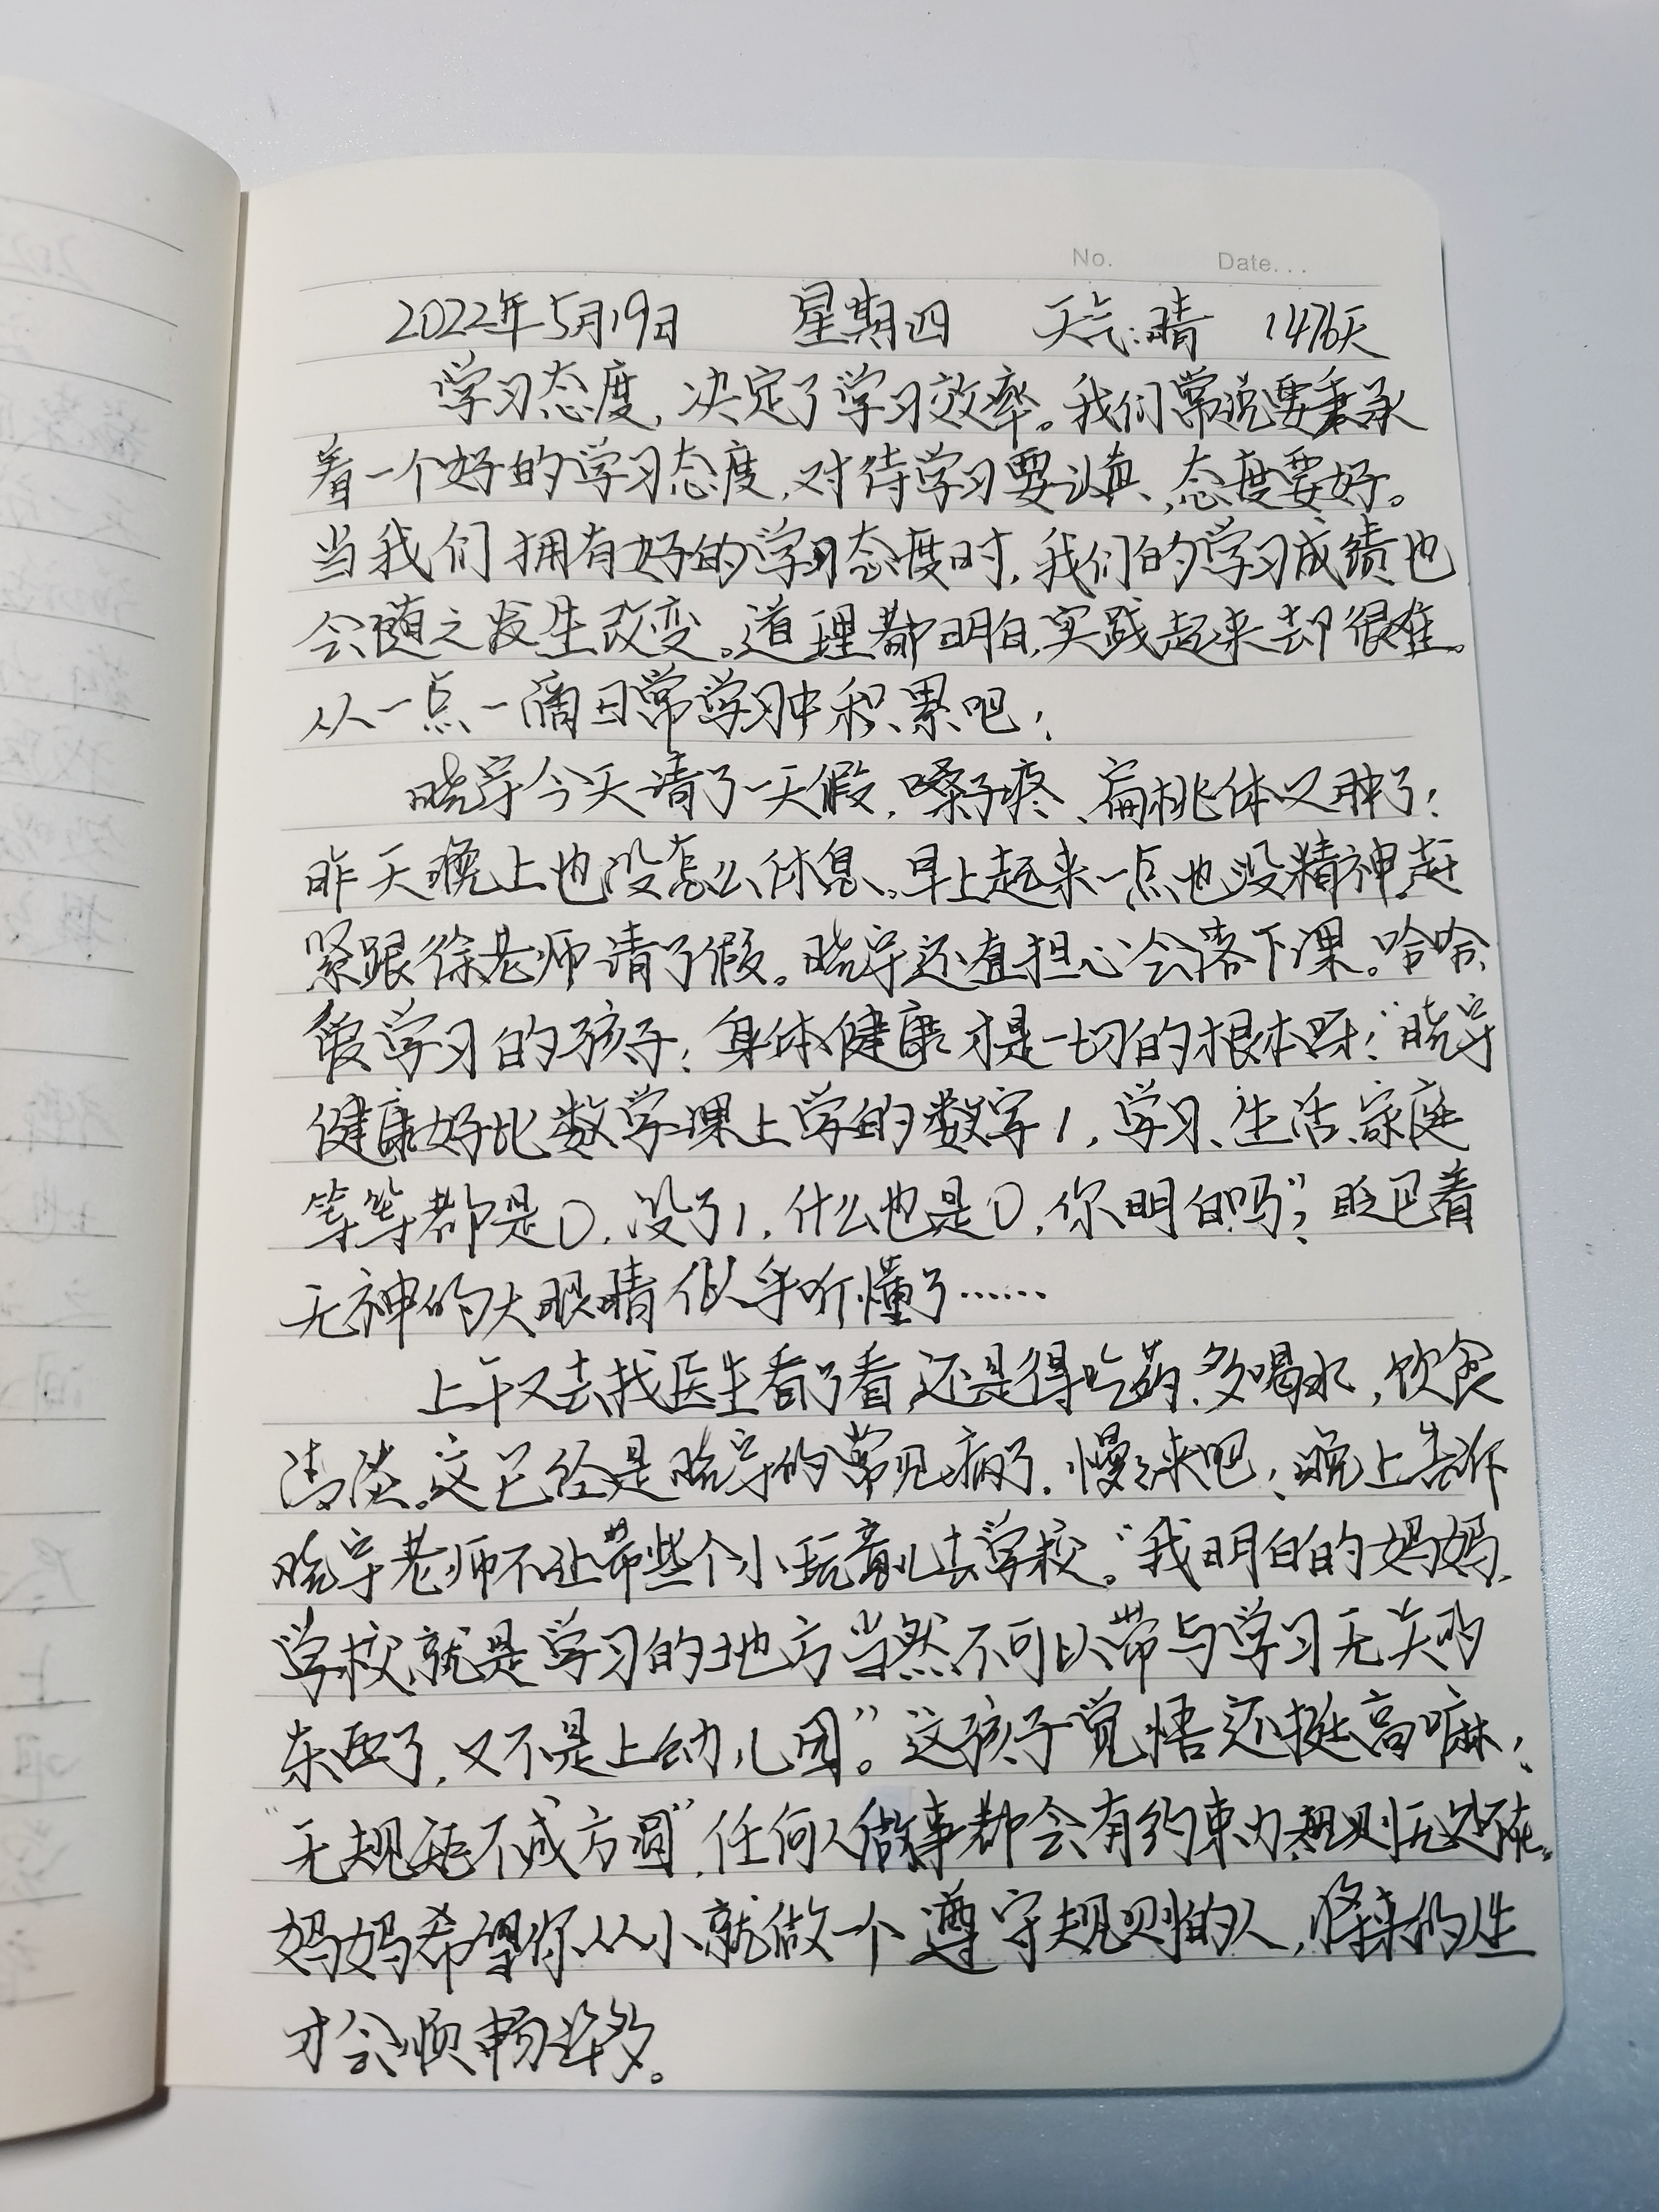 No.      Date...
2022年5月19日 星期四 天气:晴 1476天
学习态度,决定了学习效率。我们常说要秉承
着一个好的学习态度,对待学习要认真、态度要好。
当我们拥有好的学习态度时,我们的学习成绩也
会随之发生改变。道理都明白,实践起来却很难。
从一点一滴日常学习中积累吧!
晓宇今天请了一天假,嗓子疼、扁桃体又肿了!
昨天晚上也没怎么休息。早上起来一点也没精神,赶
紧跟徐老师请了假。晓宇还直担心会落下课。哈哈,
爱学习的孩子!身体健康才是一切的根本呀!“晓宇
健康好比数学课上学的数字1,学习、生活、家庭
等等都是0,没了1,什么也是0,你明白吗”?眨巴着
无神的大眼睛似乎听懂了……
上午又去找医生看了看,还是得吃药,多喝水,饮食
清淡。这已经是晓宇的常见病了,慢慢来吧!晚上告诉
晓宇老师不让带些个小玩意儿去学校。“我明白的妈妈,
学校就是学习的地方当然不可以带与学习无关的
东西了,又不是上幼儿园”。这孩子觉悟还挺高嘛!
“无规矩不成方圆”,任何人做事都会有约束力,规则无处不在。
妈妈希望你从小就做一个遵守规则的人,将来的人生
才会顺畅许多。